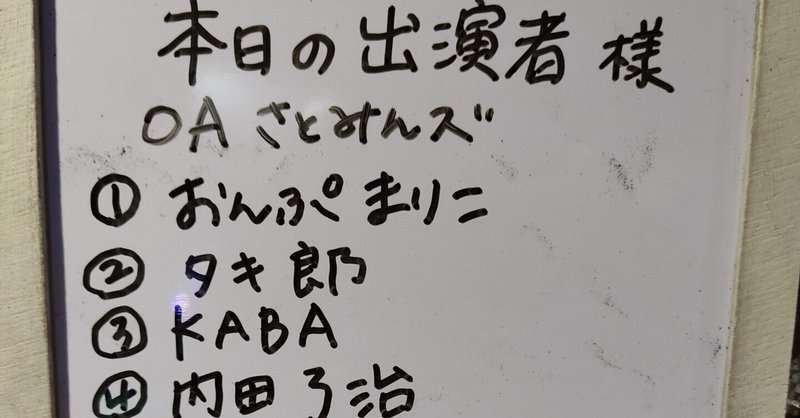 本日の出演者 様
OA さとみんズ
① おんぷ まりこ
② タキ郎
③ KABA
④ 内田 了治